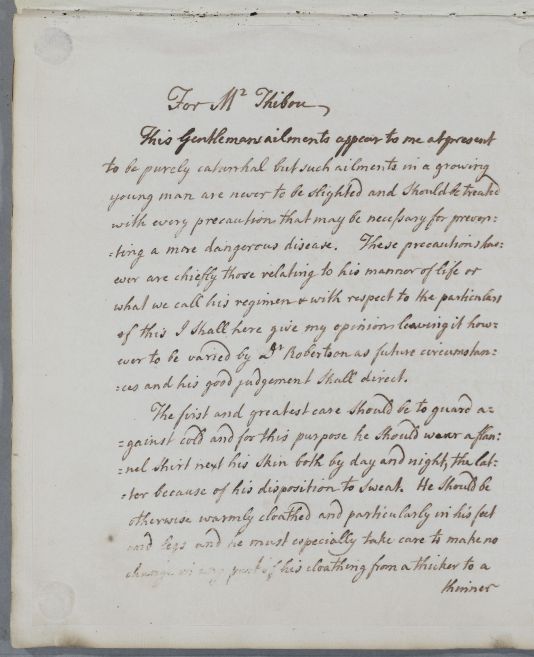 For Mr Thibou
This Gentlemans ailments appear to me at present
to be purely catarrhal but such ailments in a growing
young man are never to be slighted and should be treated
with every precaution that may be necessary for preven:
:ting a more dangerous disease. These precautions how:
ever are chiefly those relating to his manner of life or
what we call his regimen & with respect to the particulars
of this I shall here give my opinion leaving it how:
ever to be varied by Dr Robertson as future circumstan:
:ces and his good judgement shall direct.
The first and greatest care should be to guard a:
:gainst cold and for this purpose he should wear a flan:
:nel shirt next his skin both by day and night, the lat:
:ter because of his disposition to sweat. He should be
otherwise warmly cloathed and particularly in his feet
and legs and he must especially take care to make no
change in any part of his cloathing from a thicker to a
thinner